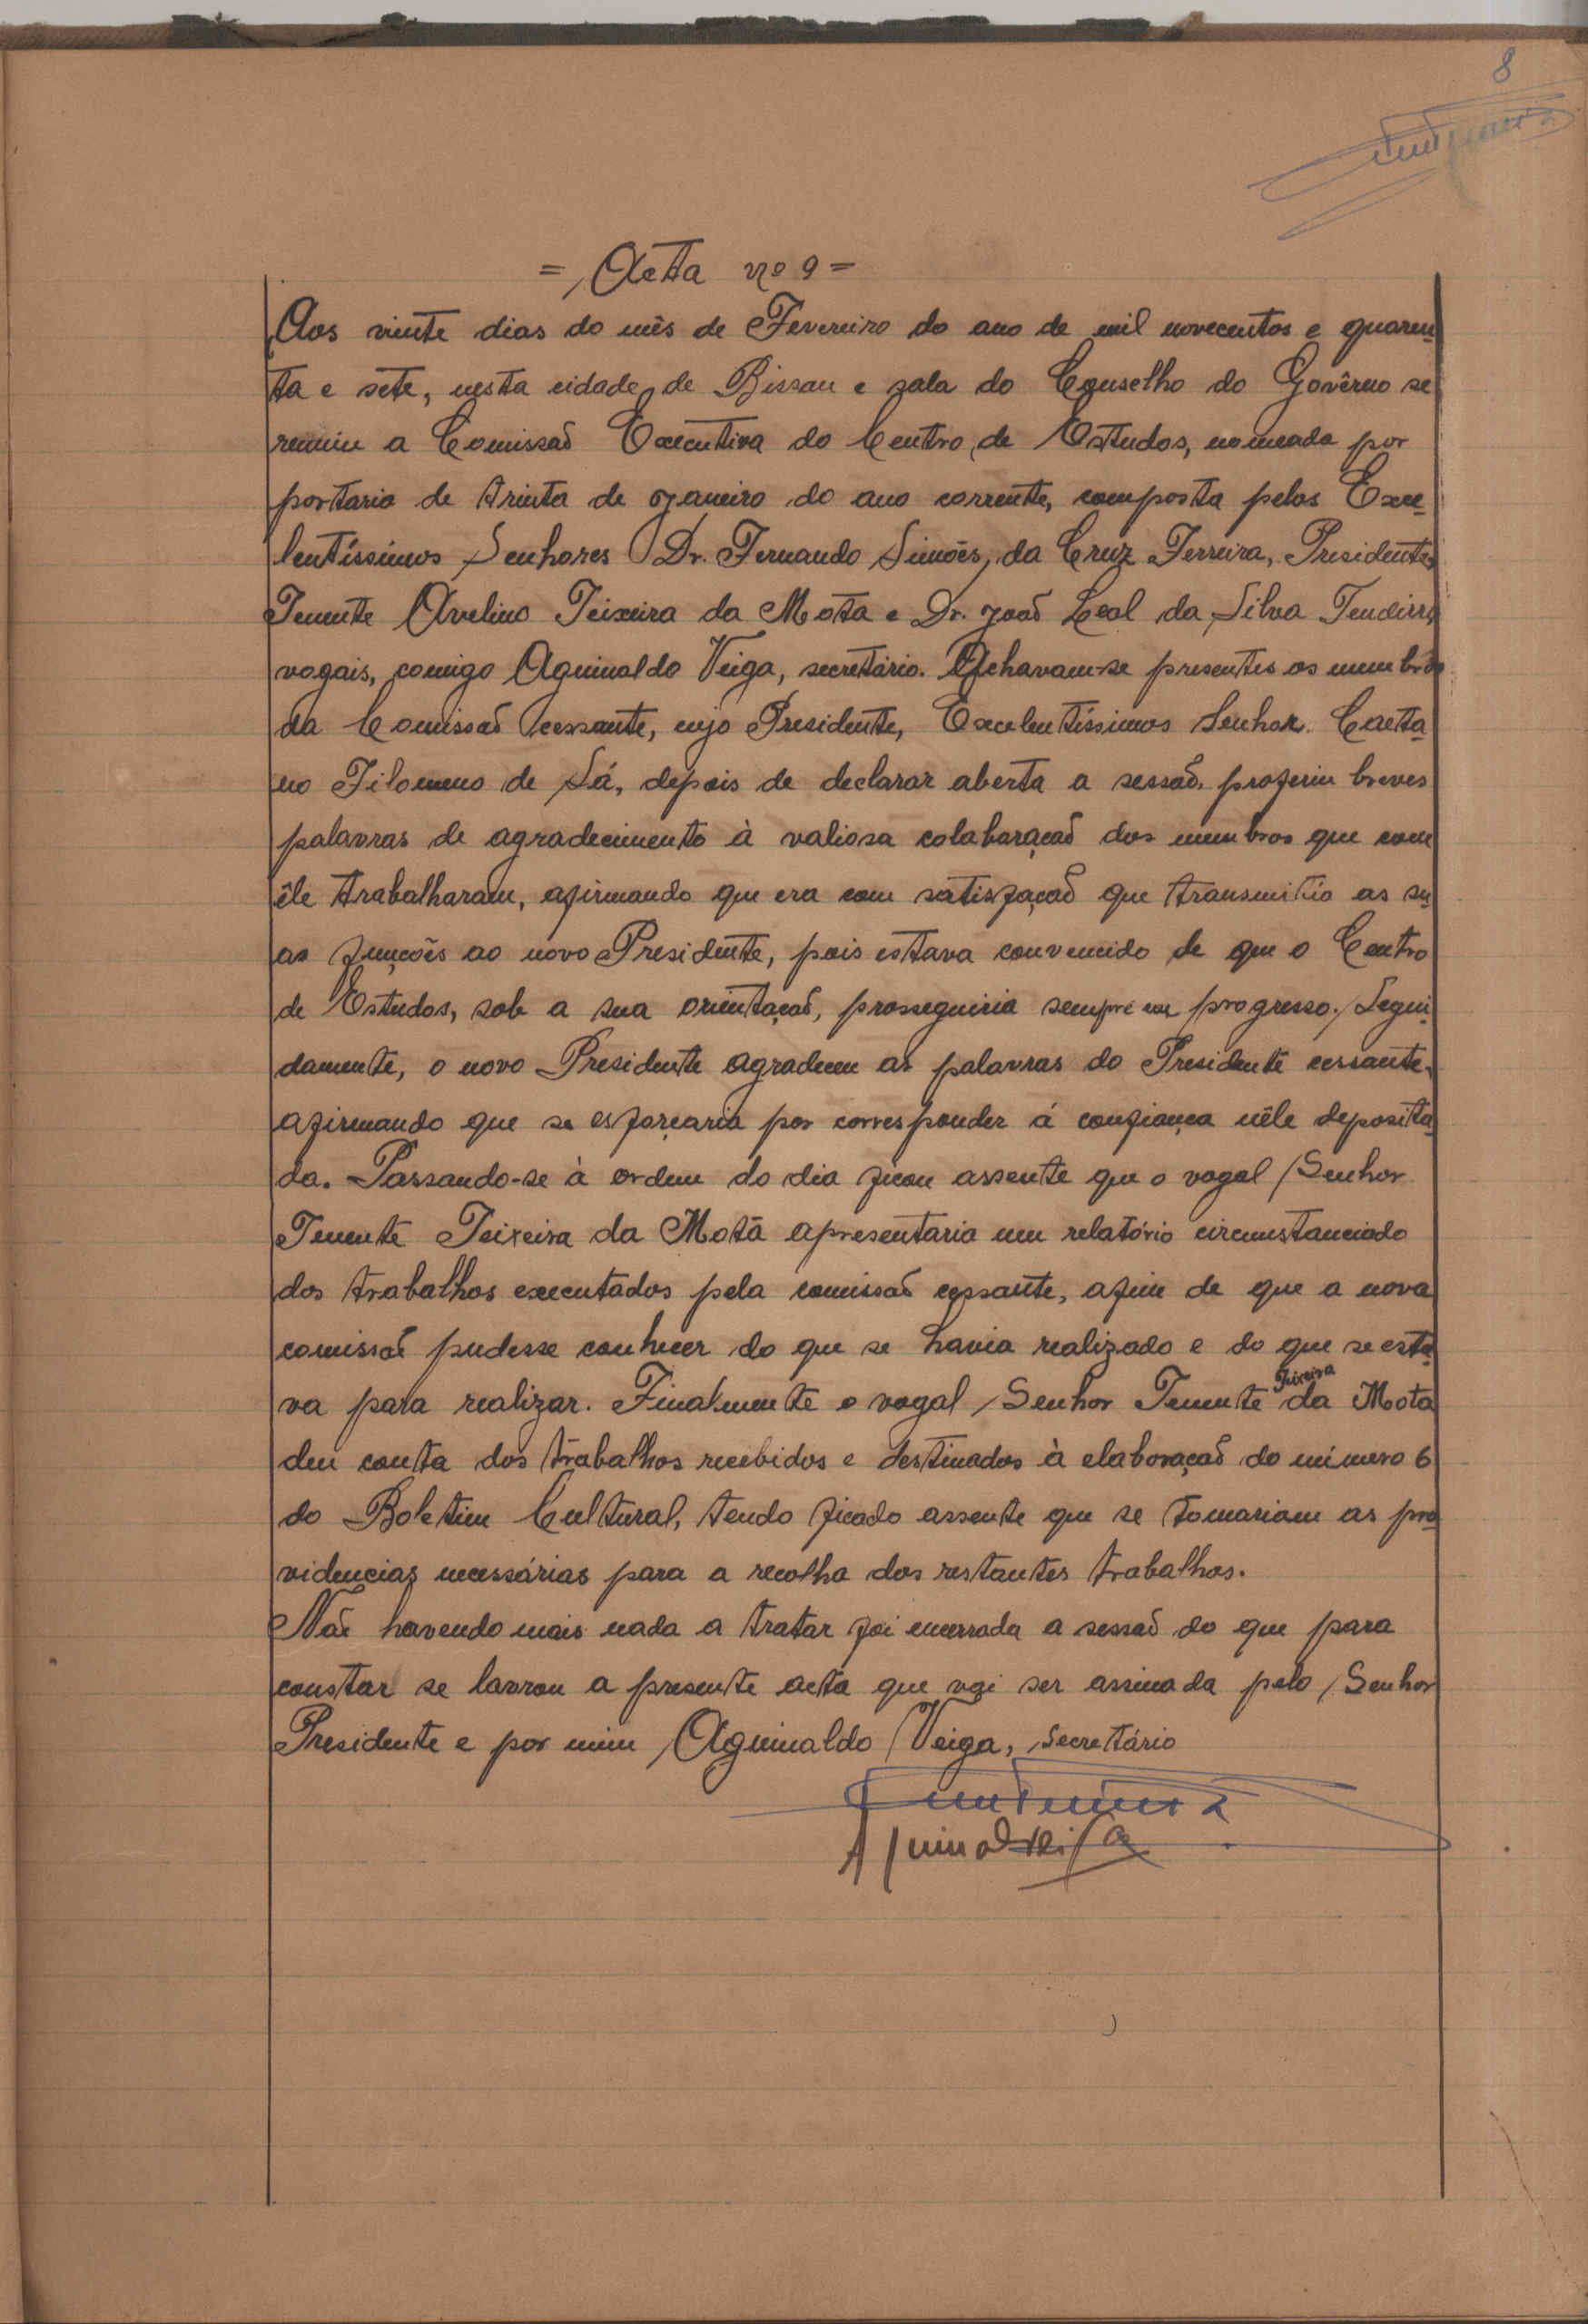 8
= Acta nº 9 =
Aos vinte dias do mês de Fevereiro do ano de mil novecentos e quaren-
ta e sete, nesta cidade de Bissau e sala do Conselho do Govêrno se
reuniu a Comissão Executiva do Centro de Estudos, nomeada por
portaria de trinta de Janeiro do ano corrente, composta pelos Exce-
lentíssimos Senhores Dr. Fernando Simões da Cruz Ferreira, Presidente,
Tenente Avelino Teixeira da Mota e Dr. João Leal da Silva Tendeiro,
vogais, comigo Aguinaldo Veiga, secretário. Achavam-se presentes os membros
da Comissão cessante, cujo Presidente, Excelentíssimos Senhor Caeta-
no Filomeno de Sá, depois de declarar aberta a sessão, proferiu breves
palavras de agradecimento à valiosa colaboração dos membros que com
êle trabalharam, afirmando que era com satisfação que transmitia as su-
as funções ao novo Presidente, pois estava convencido de que o Centro
de Estudos, sob a sua orientação, prosseguiria sempre em progresso. Segui-
damente, o novo Presidente agradeceu as palavras do Presidente cessante,
afirmando que se esforçaria por corresponder á confiança nêle deposita-
da. Passando-se à ordem do dia ficou assente que o vogal Senhor
Tenente Teixeira da Mota apresentaria um relatório circunstanciado
dos trabalhos executados pela comissão cessante, afim de que a nova
comissão pudesse conhecer do que se havia realizado e do que se esta-
va para realizar. Finalmente o vogal Senhor Tenente Teixeira da Mota
deu conta dos trabalhos recebidos e destinados à elaboração do número 6
do Boletim Cultural, tendo ficado assente que se tomariam as pro-
videncias necessárias para a recolha dos restantes trabalhos.
Não havendo mais nada a tratar foi encerrada a sessão do que para
constar se lavrou a presente acta que vai ser assinada pelo Senhor
Presidente e por mim Aguinaldo Veiga, Secretário